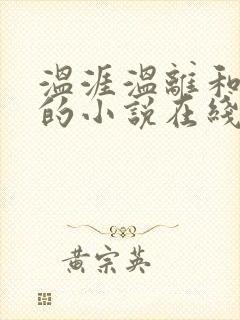 温涯温離和
的小说在綫
黄宗英